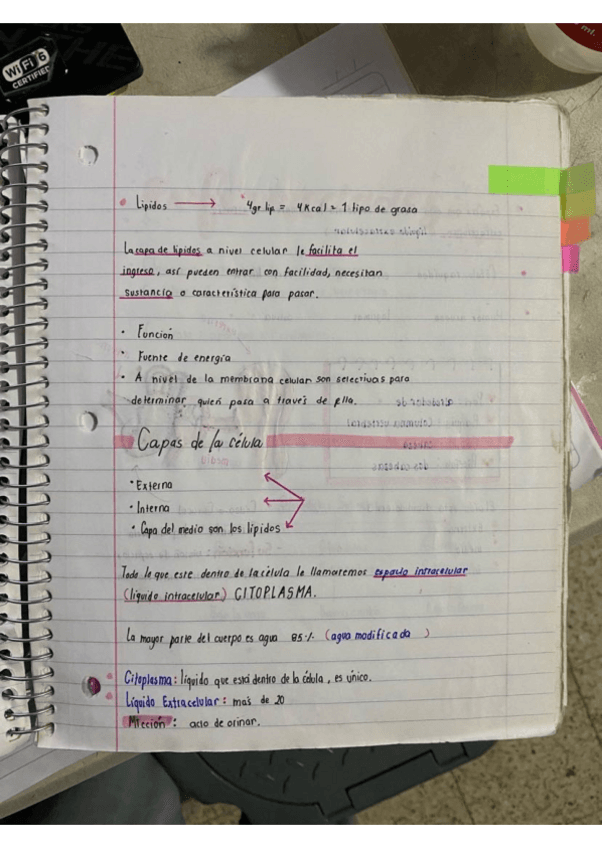 WiFi 6
CERTIFIED
ml.
• Lipidos → 4gr lip = 4Kcal = 1 tipo de grasa
La capa de lipidos a nivel celular le facilita el
ingreso, así pueden entrar con facilidad, necesitan
sustancia o característica para pasar.
• Función
• Fuente de energía
• A nivel de la membrana celular son selectivas para
determinar quien pasa a través de ella.
Capas de la célula
• Externa
• Interna
• Capa del medio son los lípidos
Todo lo que este dentro de la célula le llamaremos espacio intracelular
(líquido intracelular) CITOPLASMA.
La mayor parte del cuerpo es agua 85% (agua modificada)
Citoplasma: líquido que está dentro de la célula, es único.
Líquido Extracelular: más de 20
Micción: acto de orinar.